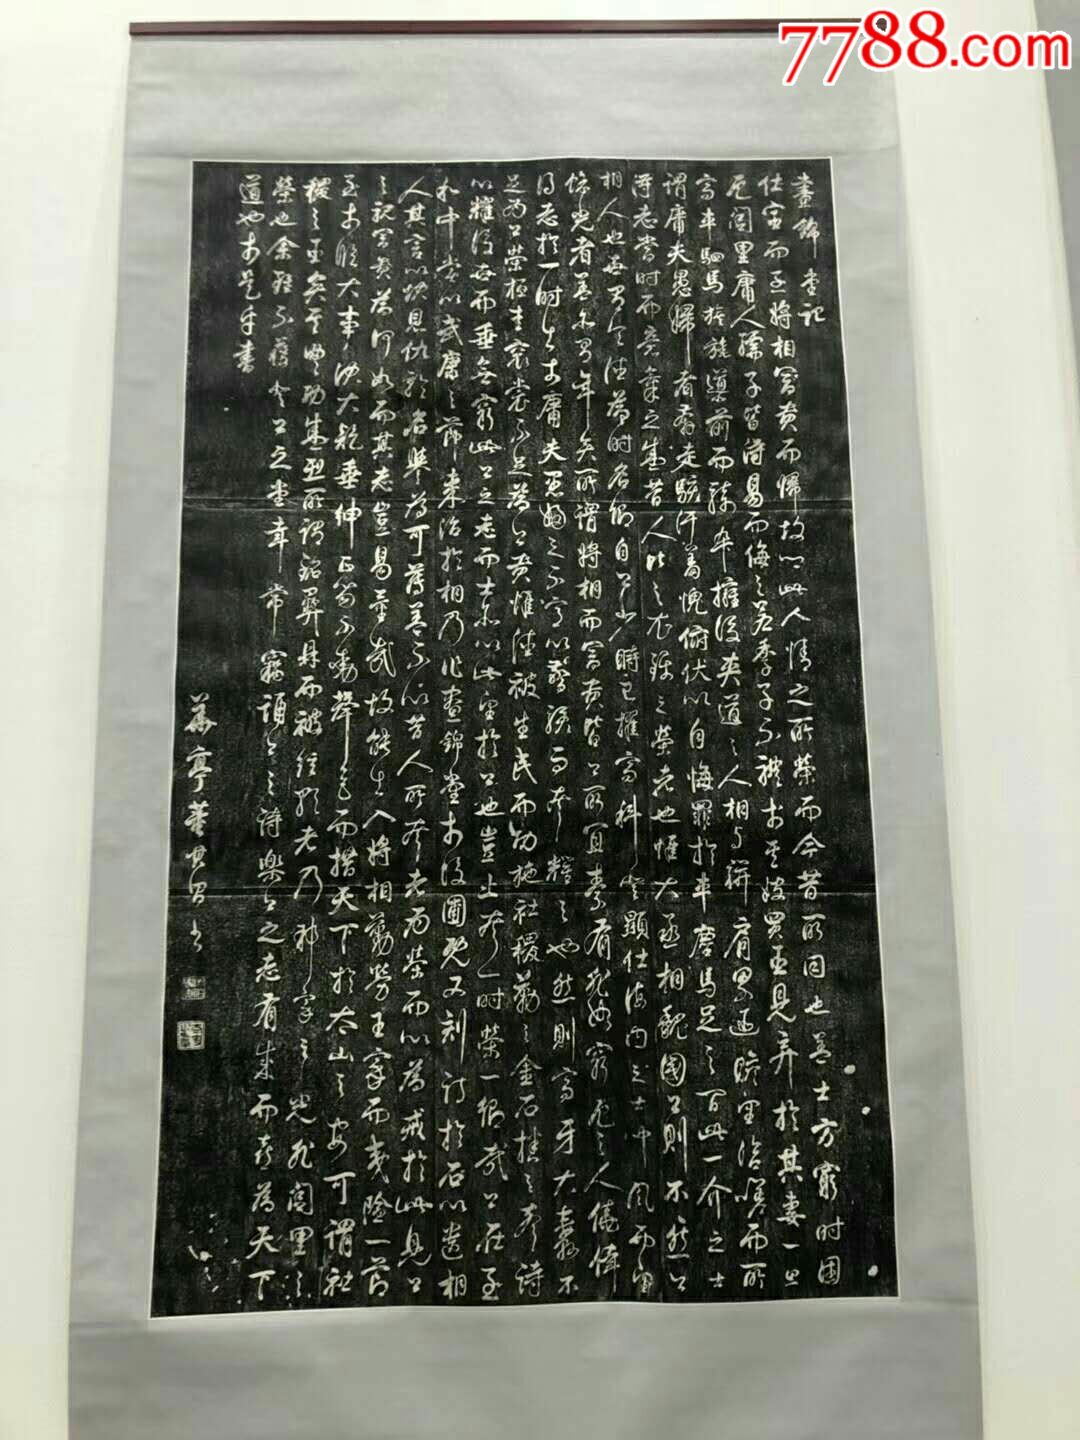 晝錦堂記
仕宦而至將相富貴而歸故此人情之所榮而今昔所同也蓋士方窮時困
阨閭里庸人孺子皆得易而侮之若季子不禮於其嫂買臣見棄於其妻一旦
高車駟馬旗旄導前而騎卒擁後夾道之人相與駢肩累迹瞻望咨嗟而所
謂庸夫愚婦者奔走駭汗羞愧俯伏以自悔罪於車塵馬足之間此一介之士
得志當時而意氣之盛昔人比之衣錦之榮者也惟大丞相魏國公則不然公
相人也世有令德為時名卿自公少時已擢高科登顯仕海內之士聞下風而望
餘光者蓋亦有年矣所謂將相而富貴皆公所宜素有非如窮阨之人僥倖
得志於一時出於庸夫愚婦之不意以驚駭而夸耀之也然則高牙大纛不
足為公榮桓圭袞裳不足為公貴惟德被生民而功施社稷勒之金石播之聲詩
以耀後世而垂無窮此公之志而士亦以此望於公也豈止夸一時榮一鄉哉公在至
和中嘗以武康之節來治於相乃作晝錦堂於後圃既又刻詩於石以遺相
人其言以快恩仇矜名譽為可薄蓋不以昔人所夸者為榮而以為戒於此見公
之視富貴為何如而其志豈易量哉故能出入將相勤勞王家而夷險一節
至於臨大事決大疑垂紳正笏不動聲色而措天下於太山之安可謂社
稷之臣矣其豐功盛烈所謂銘彝鼎而被絃歌者乃邦家之光非閭里之
榮也余雖不獲登公之堂幸常竊誦公之詩樂公之志有成而喜為天下
道也於是乎書
華亭董其昌書
7788.com